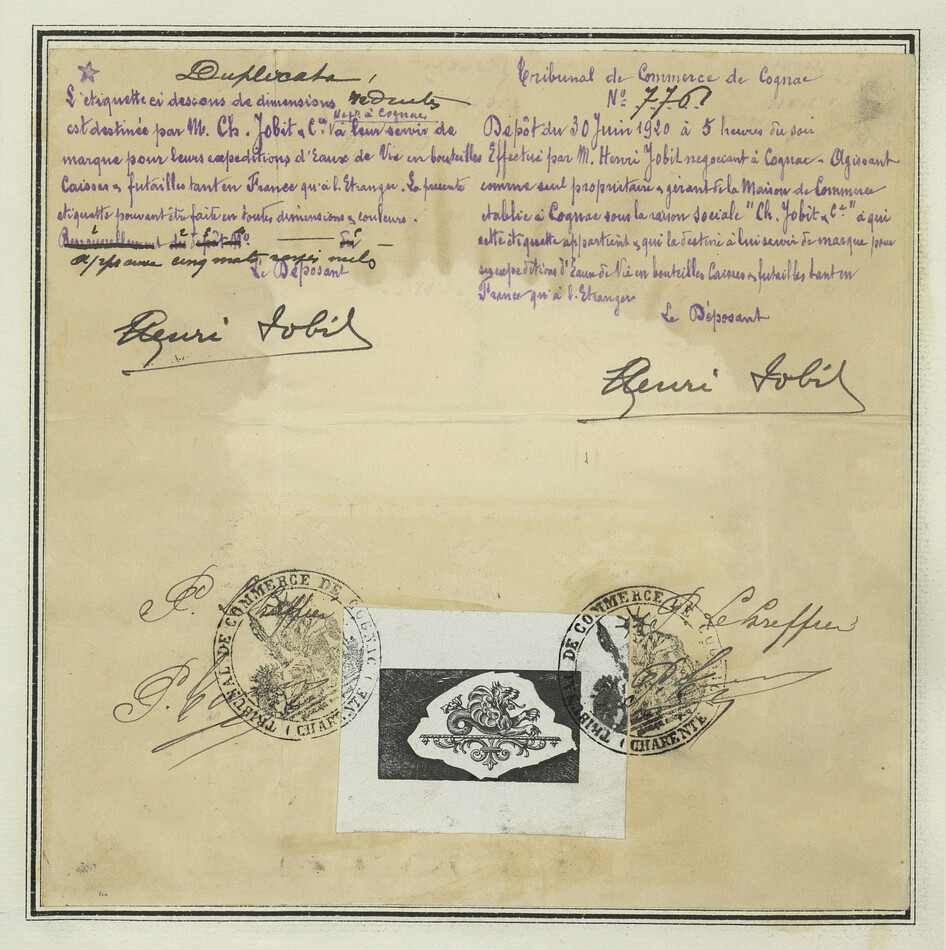 Duplicata
L'etiquette ci dessous de dimensions reduites
est destinée par M. Ch. Jobit & Cie Negts à Cognac à leur servir de
marque pour leurs expeditions d'Eaux de Vie en bouteilles
Caisses & futailles tant en France qu'à l'Etranger. La présente
etiquette pouvant être faite en toutes dimensions & couleurs.
Renouvellement du dépôt No du
cinq mots rayés nuls
Le Déposant
Henri Jobit
Tribunal de Commerce de Cognac
No 776
Depôt du 30 Juin 1920 à 5 heures du soir
Effectué par M. Henri Jobit negociant à Cognac - Agissant
comme seul propriétaire & gérant de la Maison de Commerce
etablie à Cognac sous la raison sociale "Ch. Jobit & Cie" à qui
cette etiquette appartient & qui la destine à lui servir de marque pour
ses expeditions d'Eaux de Vie en bouteilles Caisses & futailles tant en
France qu'à l'Etranger
Le Déposant
Henri Jobit
Greffier
TRIBUNAL DE COMMERCE DE COGNAC
(CHARENTE)
P. Le Greffier
TRIBUNAL DE COMMERCE DE COGNAC
(CHARENTE)